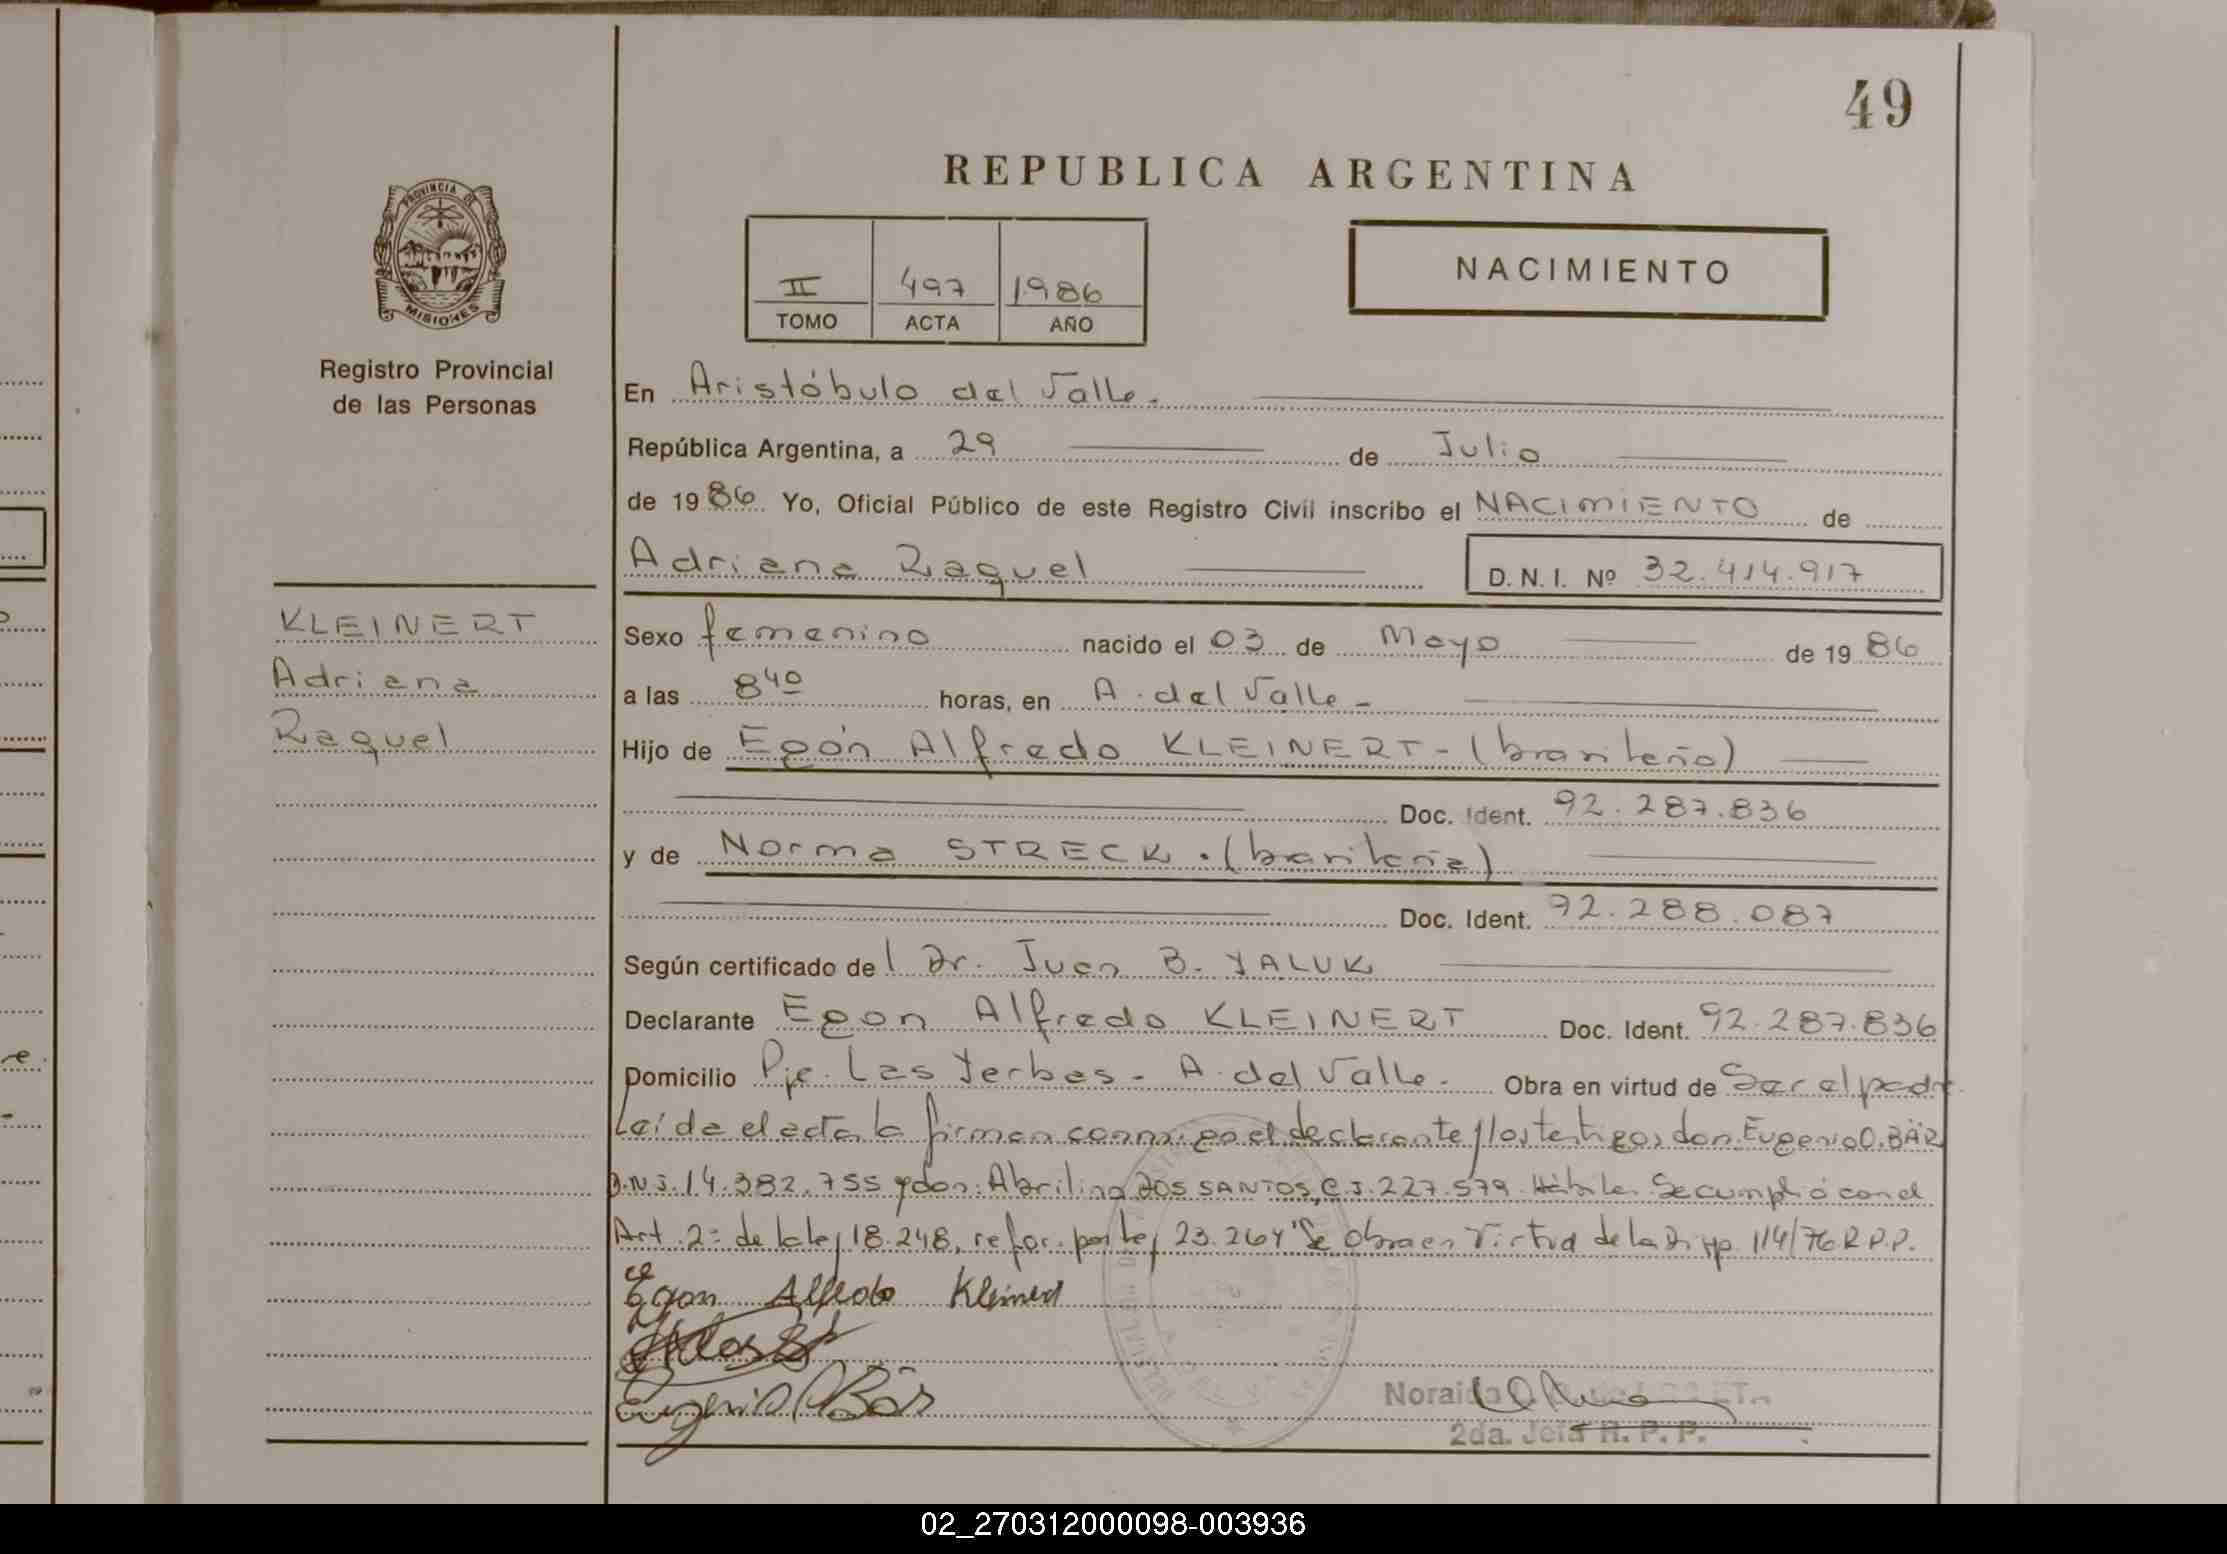 49
REPUBLICA ARGENTINA
PROVINCIA DE
MISIONES
II 497 1986
TOMO ACTA AÑO
NACIMIENTO
Registro Provincial
de las Personas
En Aristóbulo del Valle.
República Argentina, a 29 de Julio
de 1986 Yo, Oficial Público de este Registro Civil inscribo el NACIMIENTO de
Adriana Raquel D. N. I. Nº 32.414.917
KLEINERT
Adriana
Raquel
Sexo femenino nacido el 03 de Mayo de 1986
a las 8 40 horas, en A. del Valle -
Hijo de Egón Alfredo KLEINERT - (brasileño)
Doc. Ident. 92.287.836
y de Norma STRECK . (brasileña)
Doc. Ident. 92.288.087
Según certificado del Dr. Juan B. YALUK
Declarante Egon Alfredo KLEINERT Doc. Ident. 92.287.836
Domicilio Pje. Las Yerbas - A. del Valle. Obra en virtud de Ser el padre.
Leída el acta la firman conmigo el declarante y los testigos don Eugenio O. BÄR
D.N.I. 14.382.755 y don: Abrilino DOS SANTOS, C.I. 227.579. Hábiles. Se cumplió con el
Art. 2º de la ley 18.248, refor. por ley 23.264 Se Obra en Virtud de la Disp. 114/76 R.P.P.
Egon Alfredo Kleinert
Eugenio O Bär
Noraida
2da. Jefa R. P. P.
02_270312000098-003936